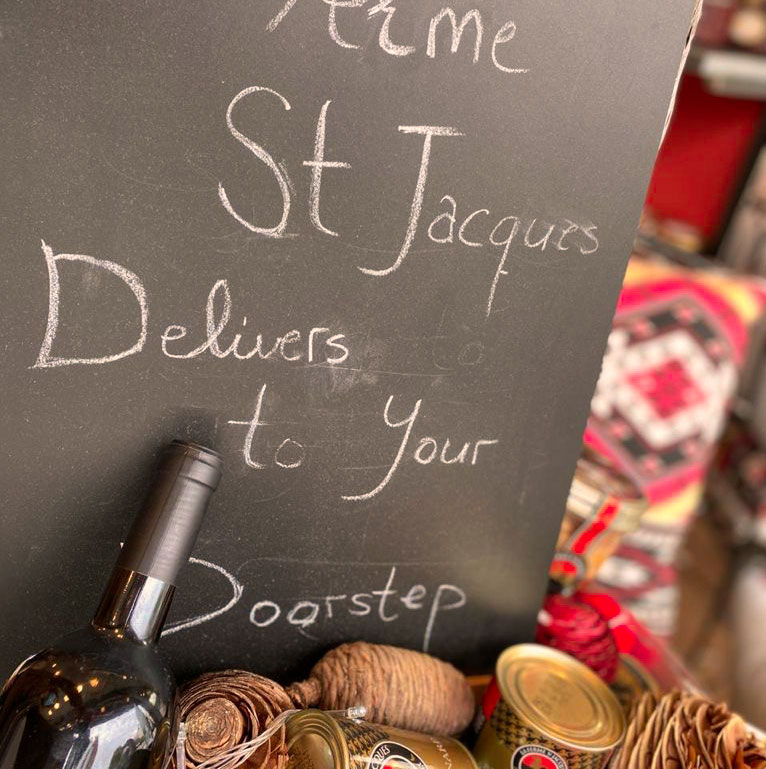 St Jacques
Delivers
to Your
Doorstep